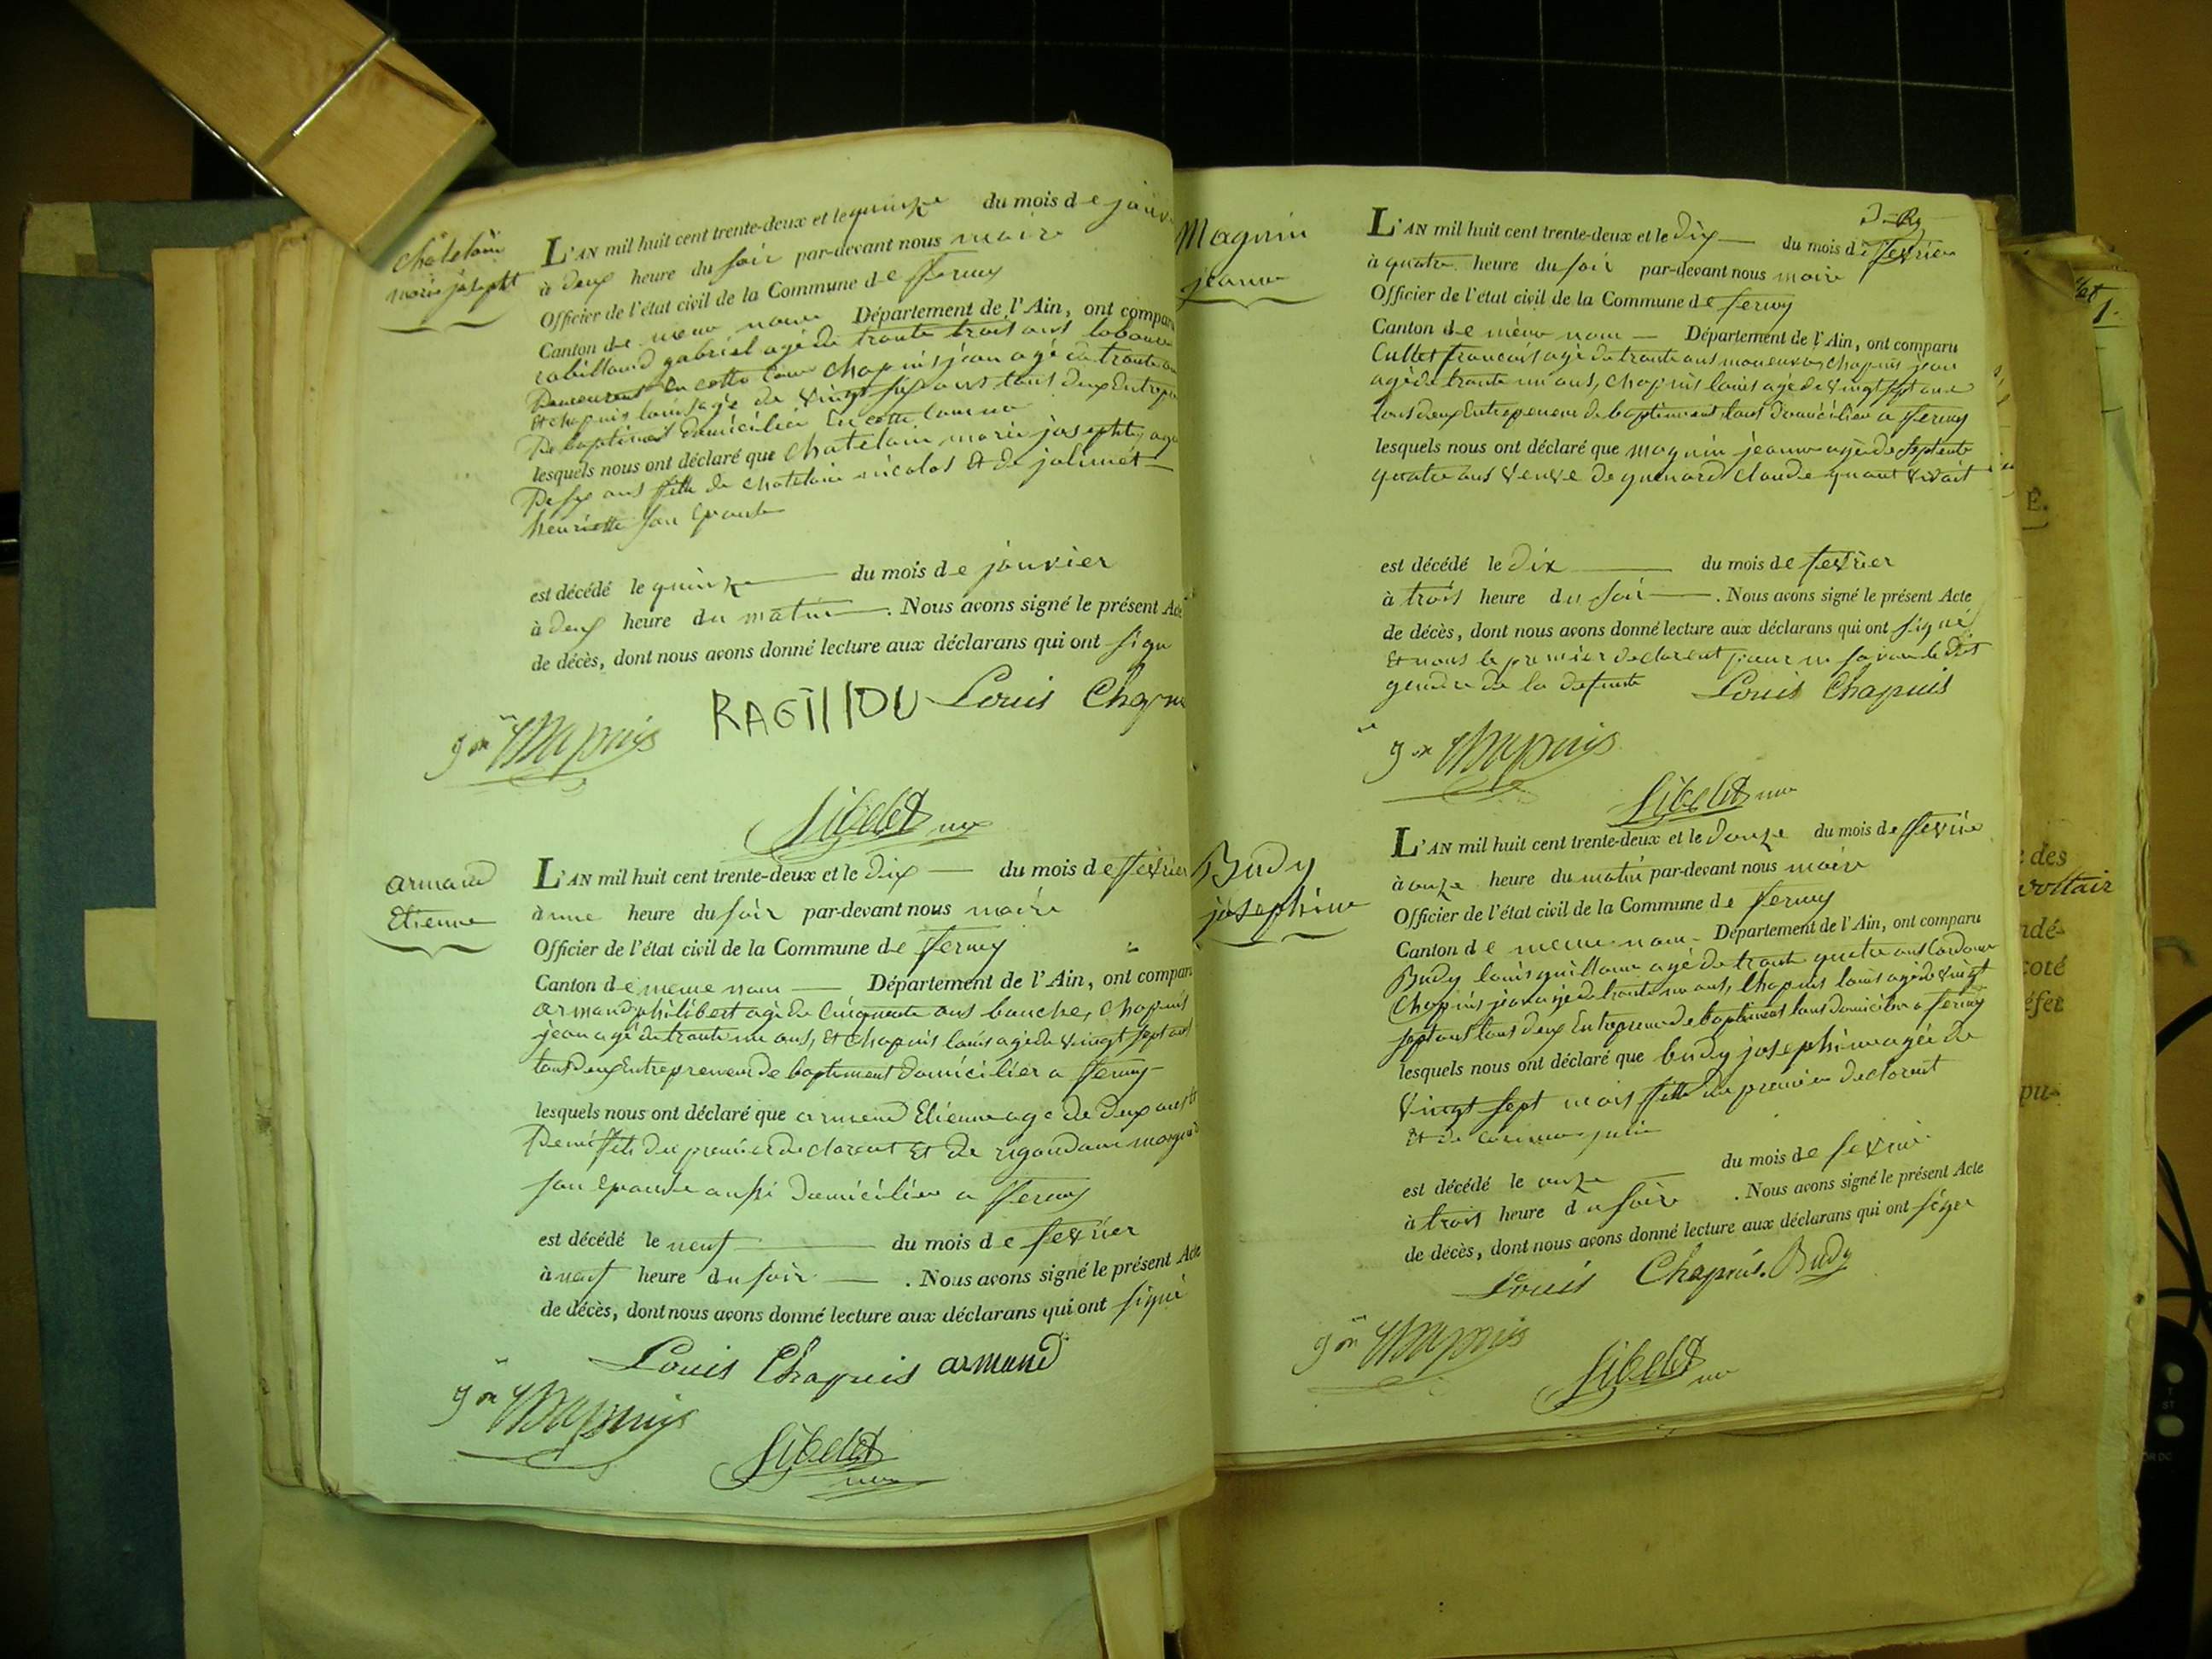 chatelain
marie josephte
L'AN mil huit cent trente-deux et le quinze du mois de janv
à deux heure du soir par-devant nous maire
Officier de l'état civil de la Commune de fferney
Canton de meme nom Département de l'Ain, ont compar
rabilloud gabriel agé de trante trois ans laboure
Demeurent En cette Com chapuis jean agé de trante
Et chapuis louis agé de vingt six ans tous deux Entrep
De baptiment domicilié En cette Commune
lesquels nous ont déclaré que chatelain marie josephte agé
De six ans fille de chatelain nicolas Et de jolimét
henriette son Epouse
est décédé le quinze du mois de janvier
à deux heure du matin. Nous avons signé le présent Acte
de décès, dont nous avons donné lecture aux déclarans qui ont signé
Louis Chapu
jn Chapuis
armand
Etienne
L'AN mil huit cent trente-deux et le dix du mois de ffevrier
à une heure du soir par-devant nous maire
Officier de l'état civil de la Commune de fferney
Canton de meme nom Département de l'Ain, ont compar
armand philibert agé de Cinquante ans boucher, Chapuis
jean agé de trante un ans, Et Chapuis louis agé de vingt sept ans
tous deux Entrepreneur de baptiment domicilier a fferney
lesquels nous ont déclaré que armand Etienne agé de deux ans Et
Demi fils du premier declarent Et de rigaud
son Epouse aussi domicilier a fferney
est décédé le neuf du mois de fevrier
à neuf heure du soir. Nous avons signé le présent Acte
de décès, dont nous avons donné lecture aux déclarans qui ont signé
Louis Chapuis armand
jn Chapuis
Magnin
jeanne
L'AN mil huit cent trente-deux et le dix du mois de ffevrier
à quatre heure du soir par-devant nous maire
Officier de l'état civil de la Commune de ferney
Canton de même nom Département de l'Ain, ont comparu
Cullet francois agé de trante ans manœuvre, Chapuis jean
agé de trante un ans, Chapuis louis agé de vingt sept ans
tous deux Entrepeneur de baptiment tous domicilier a fferney
lesquels nous ont déclaré que magnin jeanne agé de septente
quatre ans veuve de Claude quant vivait
est décédé le dix du mois de fevrier
à trois heure du soir. Nous avons signé le présent Acte
de décès, dont nous avons donné lecture aux déclarans qui ont signé
Et nous le premier declarent pour ne savoir le dit
gendre de la defunte Louis Chapuis
jn Chapuis
Budy
josephine
L'AN mil huit cent trente-deux et le douze du mois de ffevrier
à onze heure du matin par-devant nous maire
Officier de l'état civil de la Commune de ferney
Canton de meme nom Département de l'Ain, ont comparu
Budy louis guillaume agé de trante quatre ans Cordonier
Chapuis jean agé de trante un ans, Chapuis louis agé de vingt
sept ans tous deux Entrepreneur de baptiment tous domicilier a ferney
lesquels nous ont déclaré que budy josephine agée de
vingt sept mois fille du premier declarent
Et de julie
est décédé le onze du mois de fevrier
à trois heure du soire. Nous avons signé le présent Acte
de décès, dont nous avons donné lecture aux déclarans qui ont signer
Louis Chapuis. Budy
jn Chapuis
des
voltair
ndé-
coté
éfet
pu-